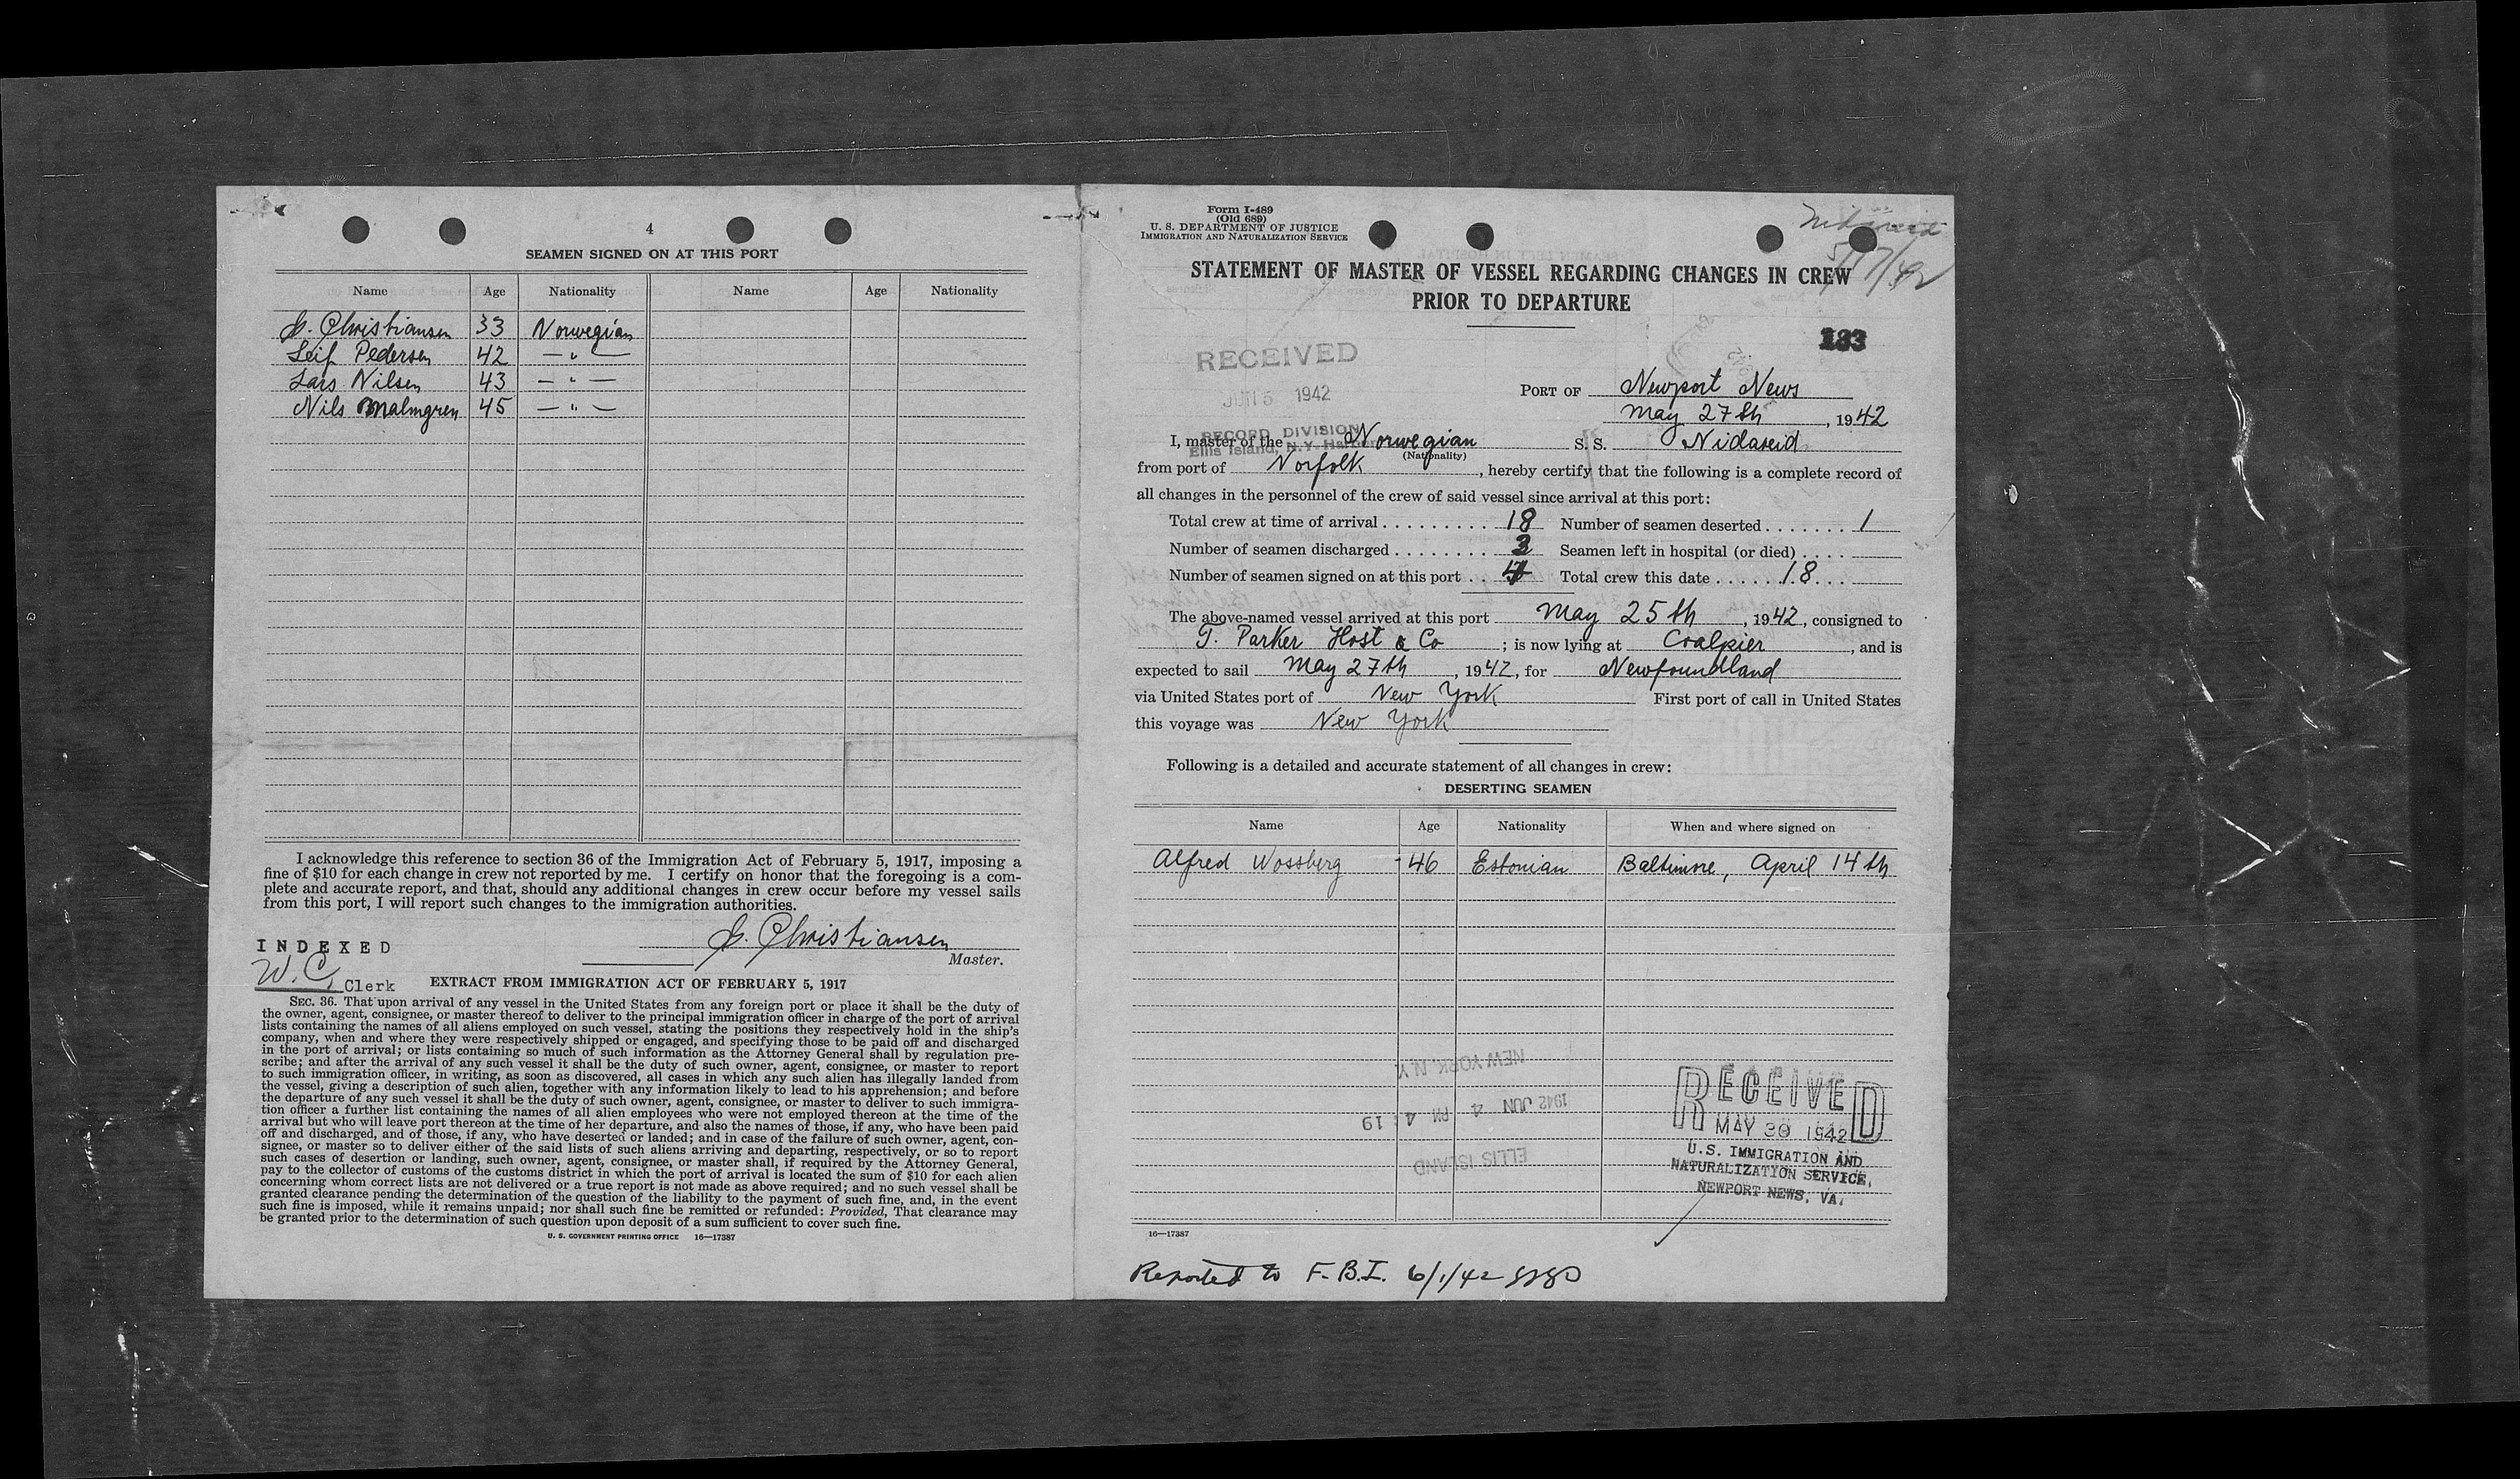 4
SEAMEN SIGNED ON AT THIS PORT
Name Age Nationality Name Age Nationality
G. Christiansen 33 Norwegian
Leif Pedersen 42 — " —
Lars Nilsen 43 — " —
Nils Malmgren 45 — " —
I acknowledge this reference to section 36 of the Immigration Act of February 5, 1917, imposing a
fine of $10 for each change in crew not reported by me. I certify on honor that the foregoing is a com-
plete and accurate report, and that, should any additional changes in crew occur before my vessel sails
from this port, I will report such changes to the immigration authorities.
INDEXED
G. Christiansen
Master.
W. C. Clerk
EXTRACT FROM IMMIGRATION ACT OF FEBRUARY 5, 1917
SEC. 36. That upon arrival of any vessel in the United States from any foreign port or place it shall be the duty of
the owner, agent, consignee, or master thereof to deliver to the principal immigration officer in charge of the port of arrival
lists containing the names of all aliens employed on such vessel, stating the positions they respectively hold in the ship's
company, when and where they were respectively shipped or engaged, and specifying those to be paid off and discharged
in the port of arrival; or lists containing so much of such information as the Attorney General shall by regulation pre-
scribe; and after the arrival of any such vessel it shall be the duty of such owner, agent, consignee, or master to report
to such immigration officer, in writing, as soon as discovered, all cases in which any such alien has illegally landed from
the vessel, giving a description of such alien, together with any information likely to lead to his apprehension; and before
the departure of any such vessel it shall be the duty of such owner, agent, consignee, or master to deliver to such immigra-
tion officer a further list containing the names of all alien employees who were not employed thereon at the time of the
arrival but who will leave port thereon at the time of her departure, and also the names of those, if any, who have been paid
off and discharged, and of those, if any, who have deserted or landed; and in case of the failure of such owner, agent, con-
signee, or master so to deliver either of the said lists of such aliens arriving and departing, respectively, or so to report
such cases of desertion or landing, such owner, agent, consignee, or master shall, if required by the Attorney General,
pay to the collector of customs of the customs district in which the port of arrival is located the sum of $10 for each alien
concerning whom correct lists are not delivered or a true report is not made as above required; and no such vessel shall be
granted clearance pending the determination of the question of the liability to the payment of such fine, and, in the event
such fine is imposed, while it remains unpaid; nor shall such fine be remitted or refunded: Provided, That clearance may
be granted prior to the determination of such question upon deposit of a sum sufficient to cover such fine.
U. S. GOVERNMENT PRINTING OFFICE 16—17387
Form I-489
(Old 689)
U. S. DEPARTMENT OF JUSTICE
IMMIGRATION AND NATURALIZATION SERVICE
STATEMENT OF MASTER OF VESSEL REGARDING CHANGES IN CREW
PRIOR TO DEPARTURE
133
RECEIVED
JUN 5 1942
RECORD DIVISION
Ellis Island, N.Y. Harbor
PORT OF Newport News
May 27th, 1942
I, master of the Norwegian S. S. Nidareid
(Nationality)
from port of Norfolk, hereby certify that the following is a complete record of
all changes in the personnel of the crew of said vessel since arrival at this port:
Total crew at time of arrival . . . . . . . . . . 18 Number of seamen deserted . . . . . . . 1
Number of seamen discharged . . . . . . . . 3 Seamen left in hospital (or died) . . . .
Number of seamen signed on at this port . . 4 Total crew this date . . . . . . 18 . . .
The above-named vessel arrived at this port May 25th, 1942, consigned to
T. Parker Host & Co; is now lying at Coalpier, and is
expected to sail May 27th, 1942, for Newfoundland
via United States port of New York First port of call in United States
this voyage was New York
Following is a detailed and accurate statement of all changes in crew:
DESERTING SEAMEN
Name Age Nationality When and where signed on
Alfred Wossberg 46 Estonian Baltimore, April 14th
NEW YORK N.Y.
1942 JUN 4 PM 4:19
ELLIS ISLAND
RECEIVED
MAY 30 1942
U.S. IMMIGRATION AND
NATURALIZATION SERVICE,
NEWPORT NEWS, VA.
16—17387
Reported to F.B.I. 6/1/42